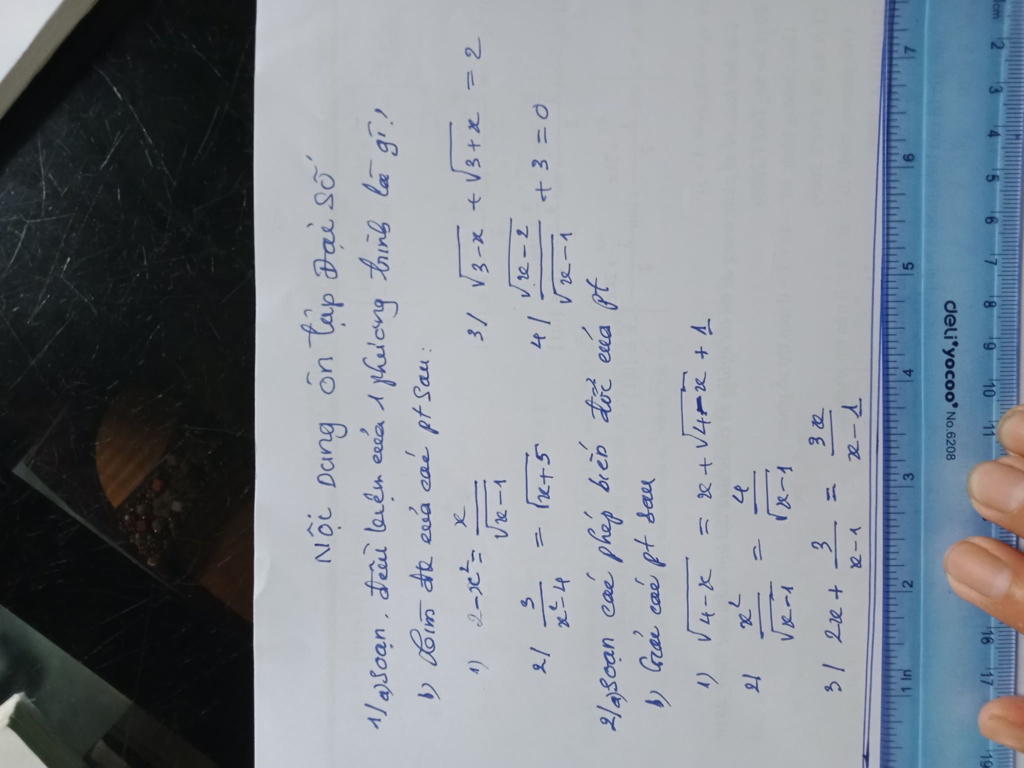 Nội Dung ôn tập Đại Số
1) a) Soạn. điều kiện của 1 phương trình là gì!
b) Tìm đk của các pt sau:
1) 2-x² = x/√x-1
3) √3-x + √3+x = 2
2) 3/x²-4 = √x+5
4) √x-2/√x-1 + 3 = 0
2) a) Soạn các phép biến đổi của pt
b) Giải các pt sau
1) √4-x = x + √4-x + 1
2) x²/√x-1 = 4/√x-1
3) 2x + 3/x-1 = 3x/x-1
deli®yocoo® No.6208
1 In 2 3 4 5 6 7
2 3 4 5 6 7 8 9 10 11 16 17 19